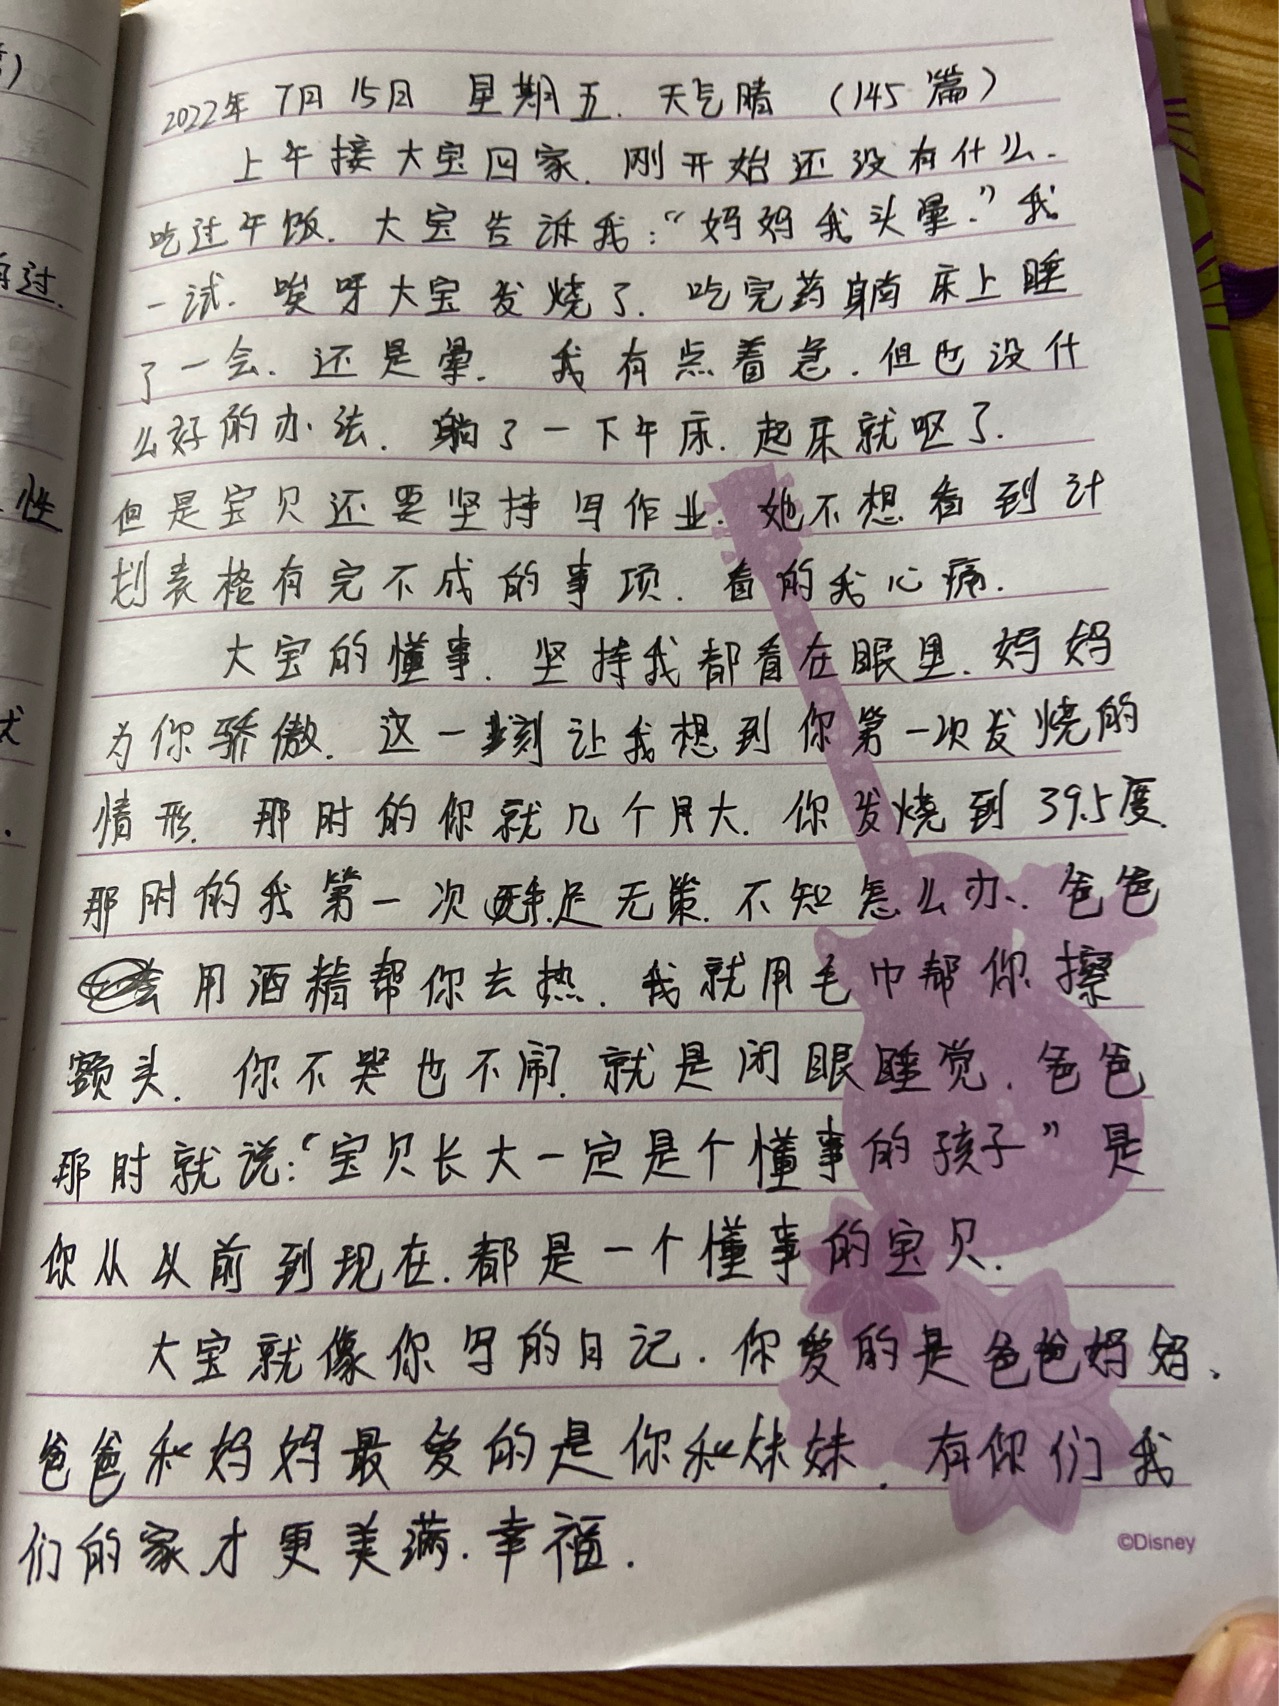 2022年 7月 15日 星期五. 天气晴 (145篇)
上午接大宝回家. 刚开始还没有什么.
吃过午饭. 大宝告诉我:“妈妈我头晕.”我
一试. 唉呀大宝发烧了. 吃完药躺床上睡
了一会. 还是晕. 我有点着急. 但也没什
么好的办法. 躺了一下午床. 起床就呕了.
但是宝贝还要坚持写作业. 她不想看到计
划表格有完不成的事项. 看的我心痛.
大宝的懂事. 坚持我都看在眼里. 妈妈
为你骄傲. 这一刻让我想到你第一次发烧的
情形. 那时的你就几个月大. 你发烧到39.5度.
那时的我第一次手足无策. 不知怎么办. 爸爸
用酒精帮你去热. 我就用毛巾帮你擦
额头. 你不哭也不闹. 就是闭眼睡觉. 爸爸
那时就说:“宝贝长大一定是个懂事的孩子”是
你从从前到现在. 都是一个懂事的宝贝.
大宝就像你写的日记. 你爱的是爸爸妈妈.
爸爸和妈妈最爱的是你和妹妹. 有你们我
们的家才更美满. 幸福.
©Disney
过.
性